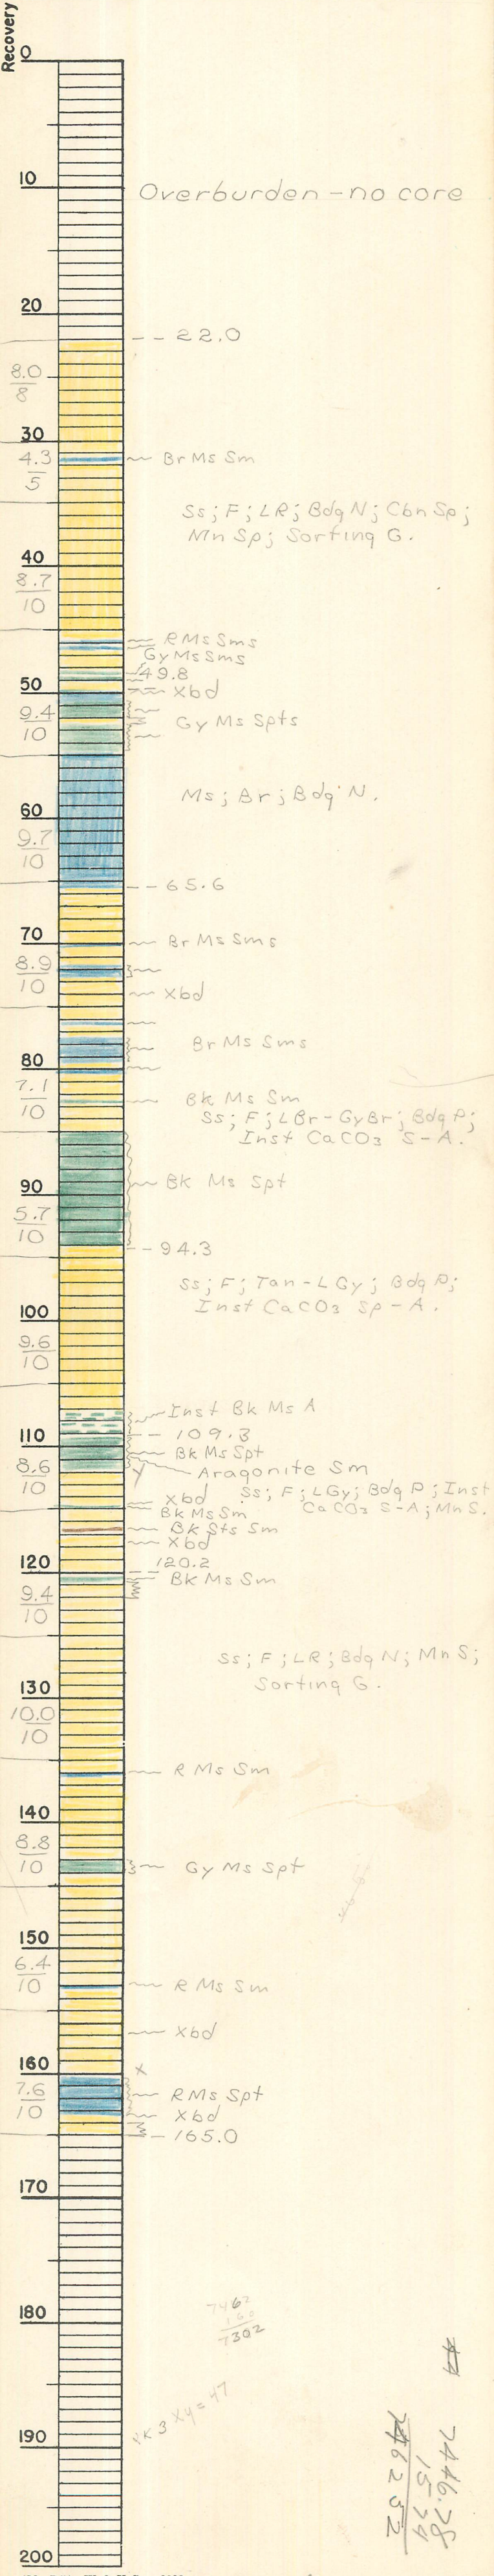 Recovery
0
10
Overburden - no core
20
-- 22.0
8.0
8
30
4.3
5
Br Ms Sm
Ss; F; LR; Bdg N; Cbn Sp;
Mn Sp; Sorting G.
40
8.7
10
R Ms Sms
Gy Ms Sms
49.8
50
Xbd
9.4
10
Gy Ms Spts
Ms; Br; Bdg N.
60
9.7
10
-- 65.6
70
Br Ms Sms
8.9
10
Xbd
Br Ms Sms
80
7.1
10
Bk Ms Sm
Ss; F; LBr-GyBr; Bdg P;
Inst CaCO3 S-A.
90
Bk Ms Spt
5.7
10
-- 94.3
Ss; F; Tan-LGy; Bdg P;
Inst CaCO3 Sp-A.
100
9.6
10
Inst Bk Ms A
-- 109.3
110
Bk Ms Spt
8.6
10
Aragonite Sm
Ss; F; LGy; Bdg P; Inst
CaCO3 S-A; Mn S.
Xbd
Bk Ms Sm
Bk Sts Sm
Xbd
120.2
120
Bk Ms Sm
9.4
10
Ss; F; LR; Bdg N; Mn S;
Sorting G.
130
10.0
10
R Ms Sm
140
8.8
10
Gy Ms Spt
150
6.4
10
R Ms Sm
Xbd
160
X
7.6
10
R Ms Spt
Xbd
- 165.0
170
180
7462
160
7302
190
XY = 47
7446.78
15.74
7462 52
200